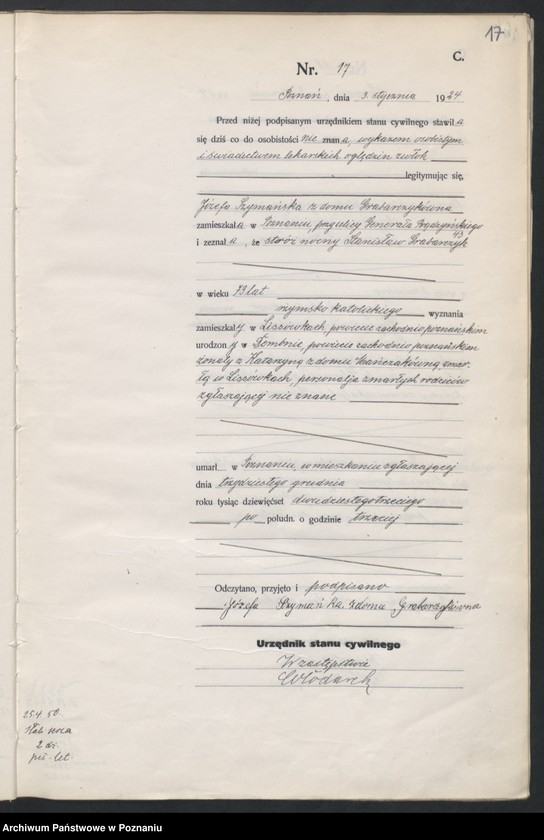 17
C.
Nr. 17
Poznań, dnia 3. stycznia 1924
Przed niżej podpisanym urzędnikiem stanu cywilnego stawiła
się dziś co do osobistości nie znana, wykazem osobistym
i świadectwem lekarskich oględzin zwłok
legitymując się,
Józefa Szymańska z domu Grabarczykówna
zamieszkała w Poznaniu, przy ulicy Generała Prądzyńskiego
43
i zeznała, że stróż nocny Stanisław Grabarczyk
w wieku 73 lat
rzymsko katolickiego wyznania
zamieszkały w Lissówkach, powiecie zachodnio poznańskim
urodzony w powiecie zachodnio poznańskim
żonaty z Katarzyną z domu zmar-
łą w Lissówkach, personalja zmarłych rodziców
zgłaszającej nie znane
umarł w Poznaniu, w mieszkaniu zgłaszającej
dnia trzydziestego grudnia
roku tysiąc dziewięćset dwudziestego trzeciego
po połudn. o godzinie trzeciej
Odczytano, przyjęto i podpisano
Józefa Szymańska z domu Grabarczykówna
Urzędnik stanu cywilnego
W zastępstwie
Włodarek
2 dz.
Archiwum Państwowe w Poznaniu